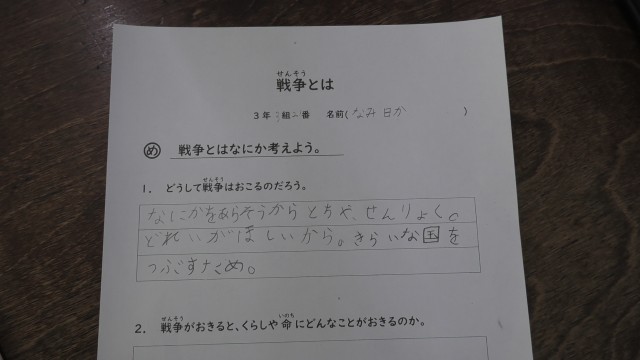 せんそう
戦争とは
3年 組 番 名前( なみ日か )
め 戦争とはなにか考えよう。
せんそう
1. どうして戦争はおこるのだろう。
なにかをあらそうから とちや、せんりょく。
どれいがほしいから。きらいな国を
つぶすため。
せんそう いのち
2. 戦争がおきると、くらしや命にどんなことがおきるのか。